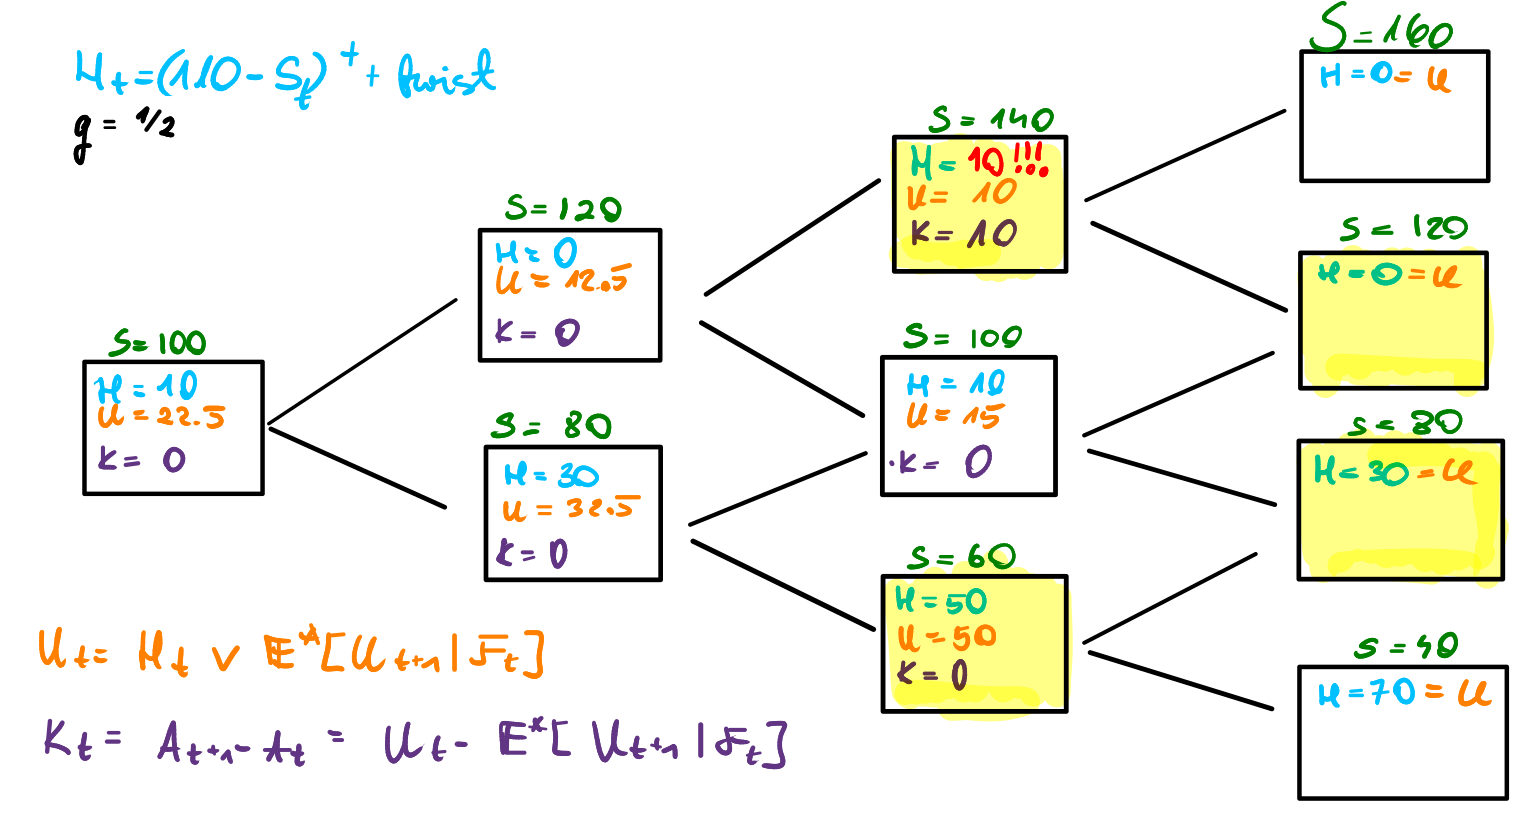 H_t = (110 - S_t)^+ + twist
q = 1/2
S = 100
H = 10
U = 22.5
K = 0
S = 120
H = 0
U = 12.5
K = 0
S = 80
H = 30
U = 32.5
K = 0
S = 140
H = 10 !!!
U = 10
K = 10
S = 100
H = 10
U = 15
K = 0
S = 60
H = 50
U = 50
K = 0
S = 160
H = 0 = U
S = 120
H = 0 = U
S = 80
H = 30 = U
S = 40
H = 70 = U
U_t = H_t ∨ E*[U_{t+1} | F_t]
K_t = A_{t+1} - A_t = U_t - E*[U_{t+1} | F_t]